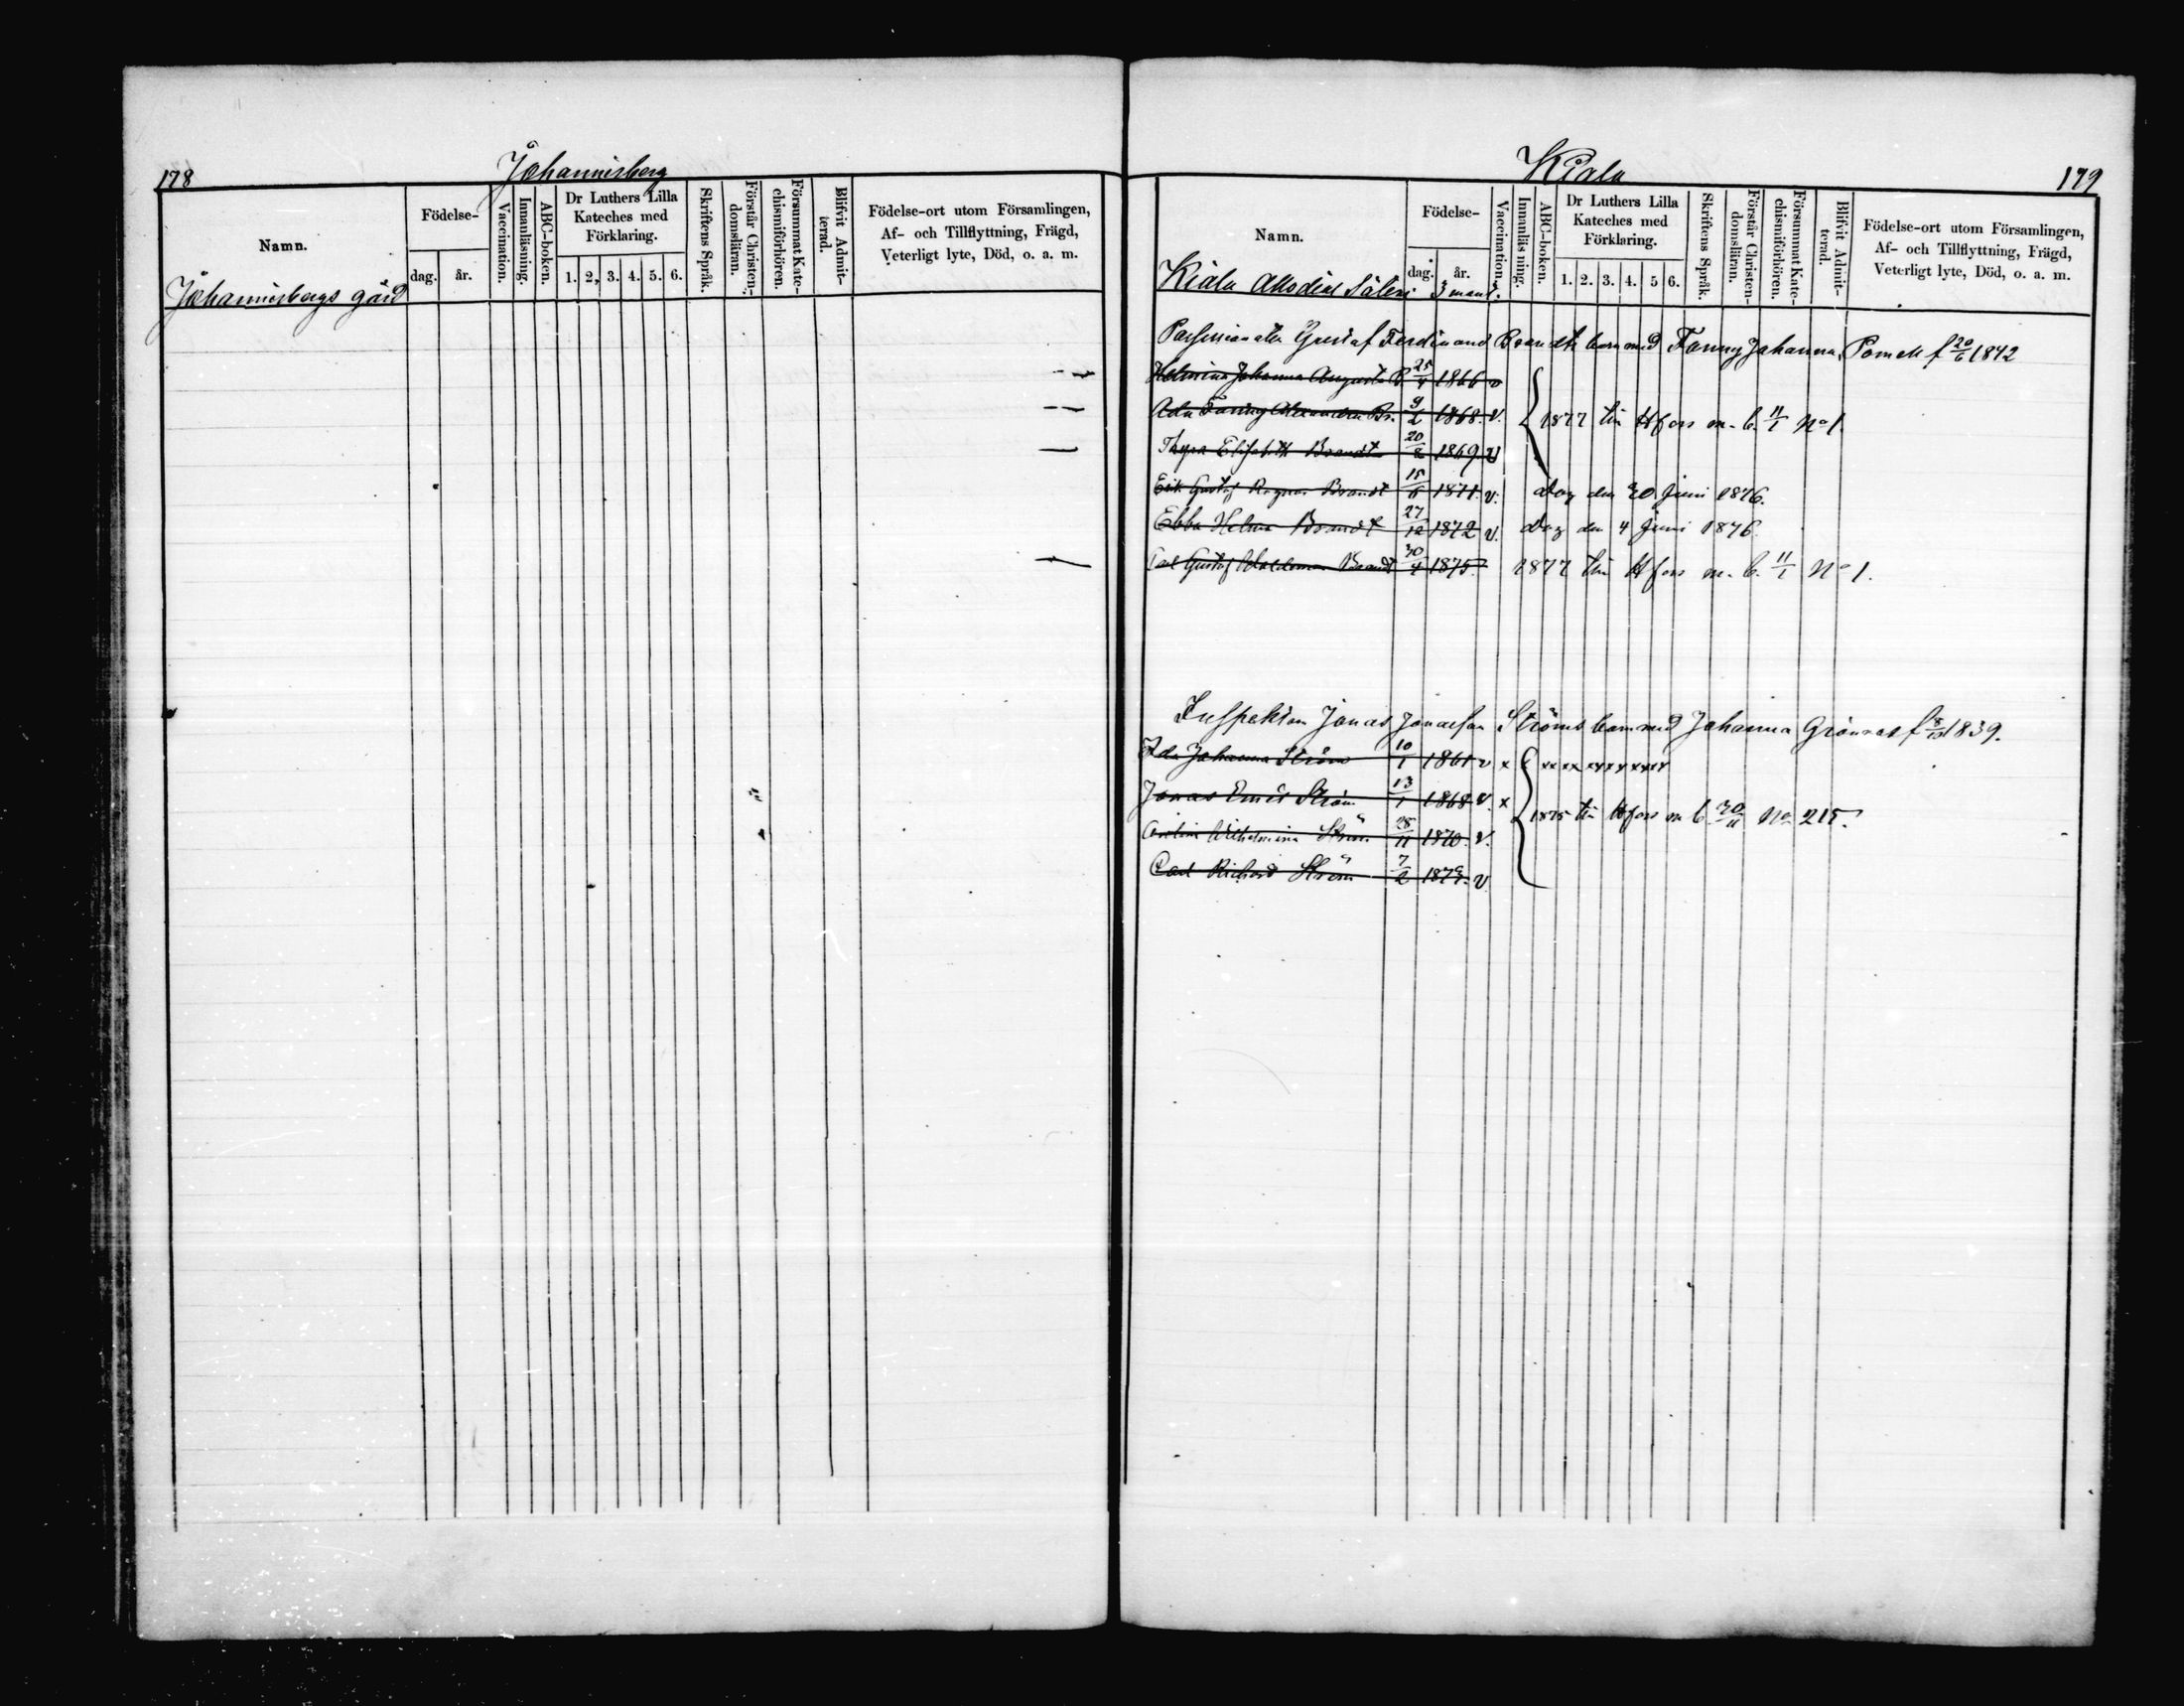 178
Johannisberg
Namn.
Födelse-
dag. år.
Vaccination.
Innanläsning.
ABC-boken.
Dr Luthers Lilla
Kateches med
Förklaring.
1. 2, 3. 4. 5. 6.
Skriftens Språk.
Förstår Christen-
domsläran.
Försummat Kate-
chismiförhören.
Blifvit Admit-
terad.
Födelse-ort utom Församlingen,
Af- och Tillflyttning, Frägd,
Veterligt lyte, Död, o. a. m.
Johannisbergs gård
Kiala
179
Namn.
Födelse-
dag. år.
Vaccination.
Innanläs ning.
ABC-boken.
Dr Luthers Lilla
Kateches med
Förklaring.
1. 2. 3. 4. 5 6.
Skriftens Språk.
Förstår Christen-
domsläran.
Försummat Kate-
chismiförhören.
Blifvit Admit-
terad.
Födelse-ort utom Församlingen,
Af- och Tillflyttning, Frägd,
Veterligt lyte, Död, o. a. m.
Kiala Allodial Säteri 3 mantl.
Possessionaten Gustaf Ferdinand Brandts barn med Fanny Johanna f 20/6 1842
Helmina Johanna Augusta B. 25/4 1866 v
Ada Fanny Alexandra Br. 9/2 1868. v. 1877 till Hfors m. b. 11/1 No 1.
Thyra Elisabeth Brandt 20/2 1869. v
Erik Gustaf Ragnar Brandt 15/5 1871. v. dog den 20 Juni 1876.
Ebba Helena Brandt 27/12 1872 v. dog den 4 Juni 1876.
Carl Gustaf Waldemar Brandt 30/4 1875. 1877 till Hfors m. b. 11/1 No 1.
Inspektorn Jonas Jonasson Ströms barn med Johanna f 8/10 1839.
Ida Johanna Ström 10/1 1861 v x xx xx xx x x xxxx
Jonas Emil Ström 13/1 1868 v. x 1875 till Hfors m b 30/11 No 215.
Wilhelmina Ström 28/11 1870. v.
Carl Richard Ström 7/2 v.